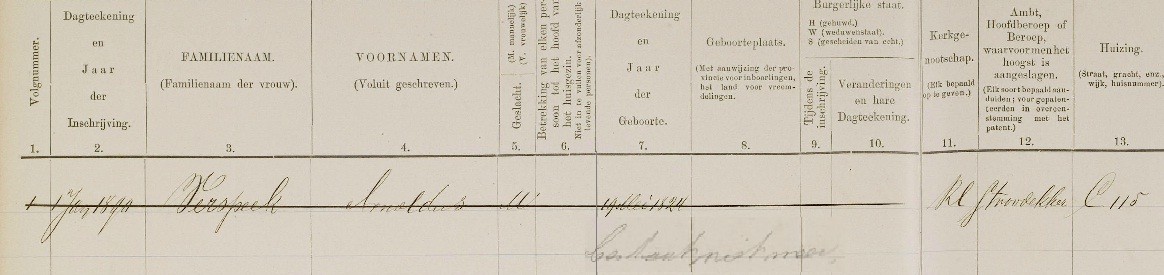 Volgnummer.
Dagteekening
en
Jaar
der
Inschrijving.
FAMILIENAAM.
(Familienaam der vrouw).
VOORNAMEN.
(Voluit geschreven.)
Geslacht.
(M. mannelijk)
(V. vrouwelijk)
Betrekking van elken per-
soon tot het hoofd van
het huisgezin.
Niet in te vullen voor afzonderlijk
levende personen.)
Dagteekening
en
Jaar
der
Geboorte.
Geboorteplaats.
(Met aanwijzing der pro-
vincie voor inboorlingen,
het land voor vreem-
delingen.
Burgerlijke staat.
H (gehuwd.)
W (weduwenstaat).
S (gescheiden van echt.)
Tijdens de
inschrijving.
Veranderingen
en hare
Dagteekening.
Kerkge-
nootschap.
(Elk bepaald
op te geven.)
Ambt,
Hoofdberoep of
Beroep,
waarvoor men het
hoogst is
aangeslagen.
(Elk soort bepaald aan-
duiden; voor gepaten-
teerden in overeen-
stemming met het
patent.)
Huizing.
(Straat, gracht, enz.,
wijk, huisnummer).
1. 2. 3. 4. 5. 6. 7. 8. 9. 10. 11. 12. 13.
1 1 Jan 1890 Verspeek Arnoldus M 19 Mei 1824 RC Stroodekker C 115
bestaat niet meer